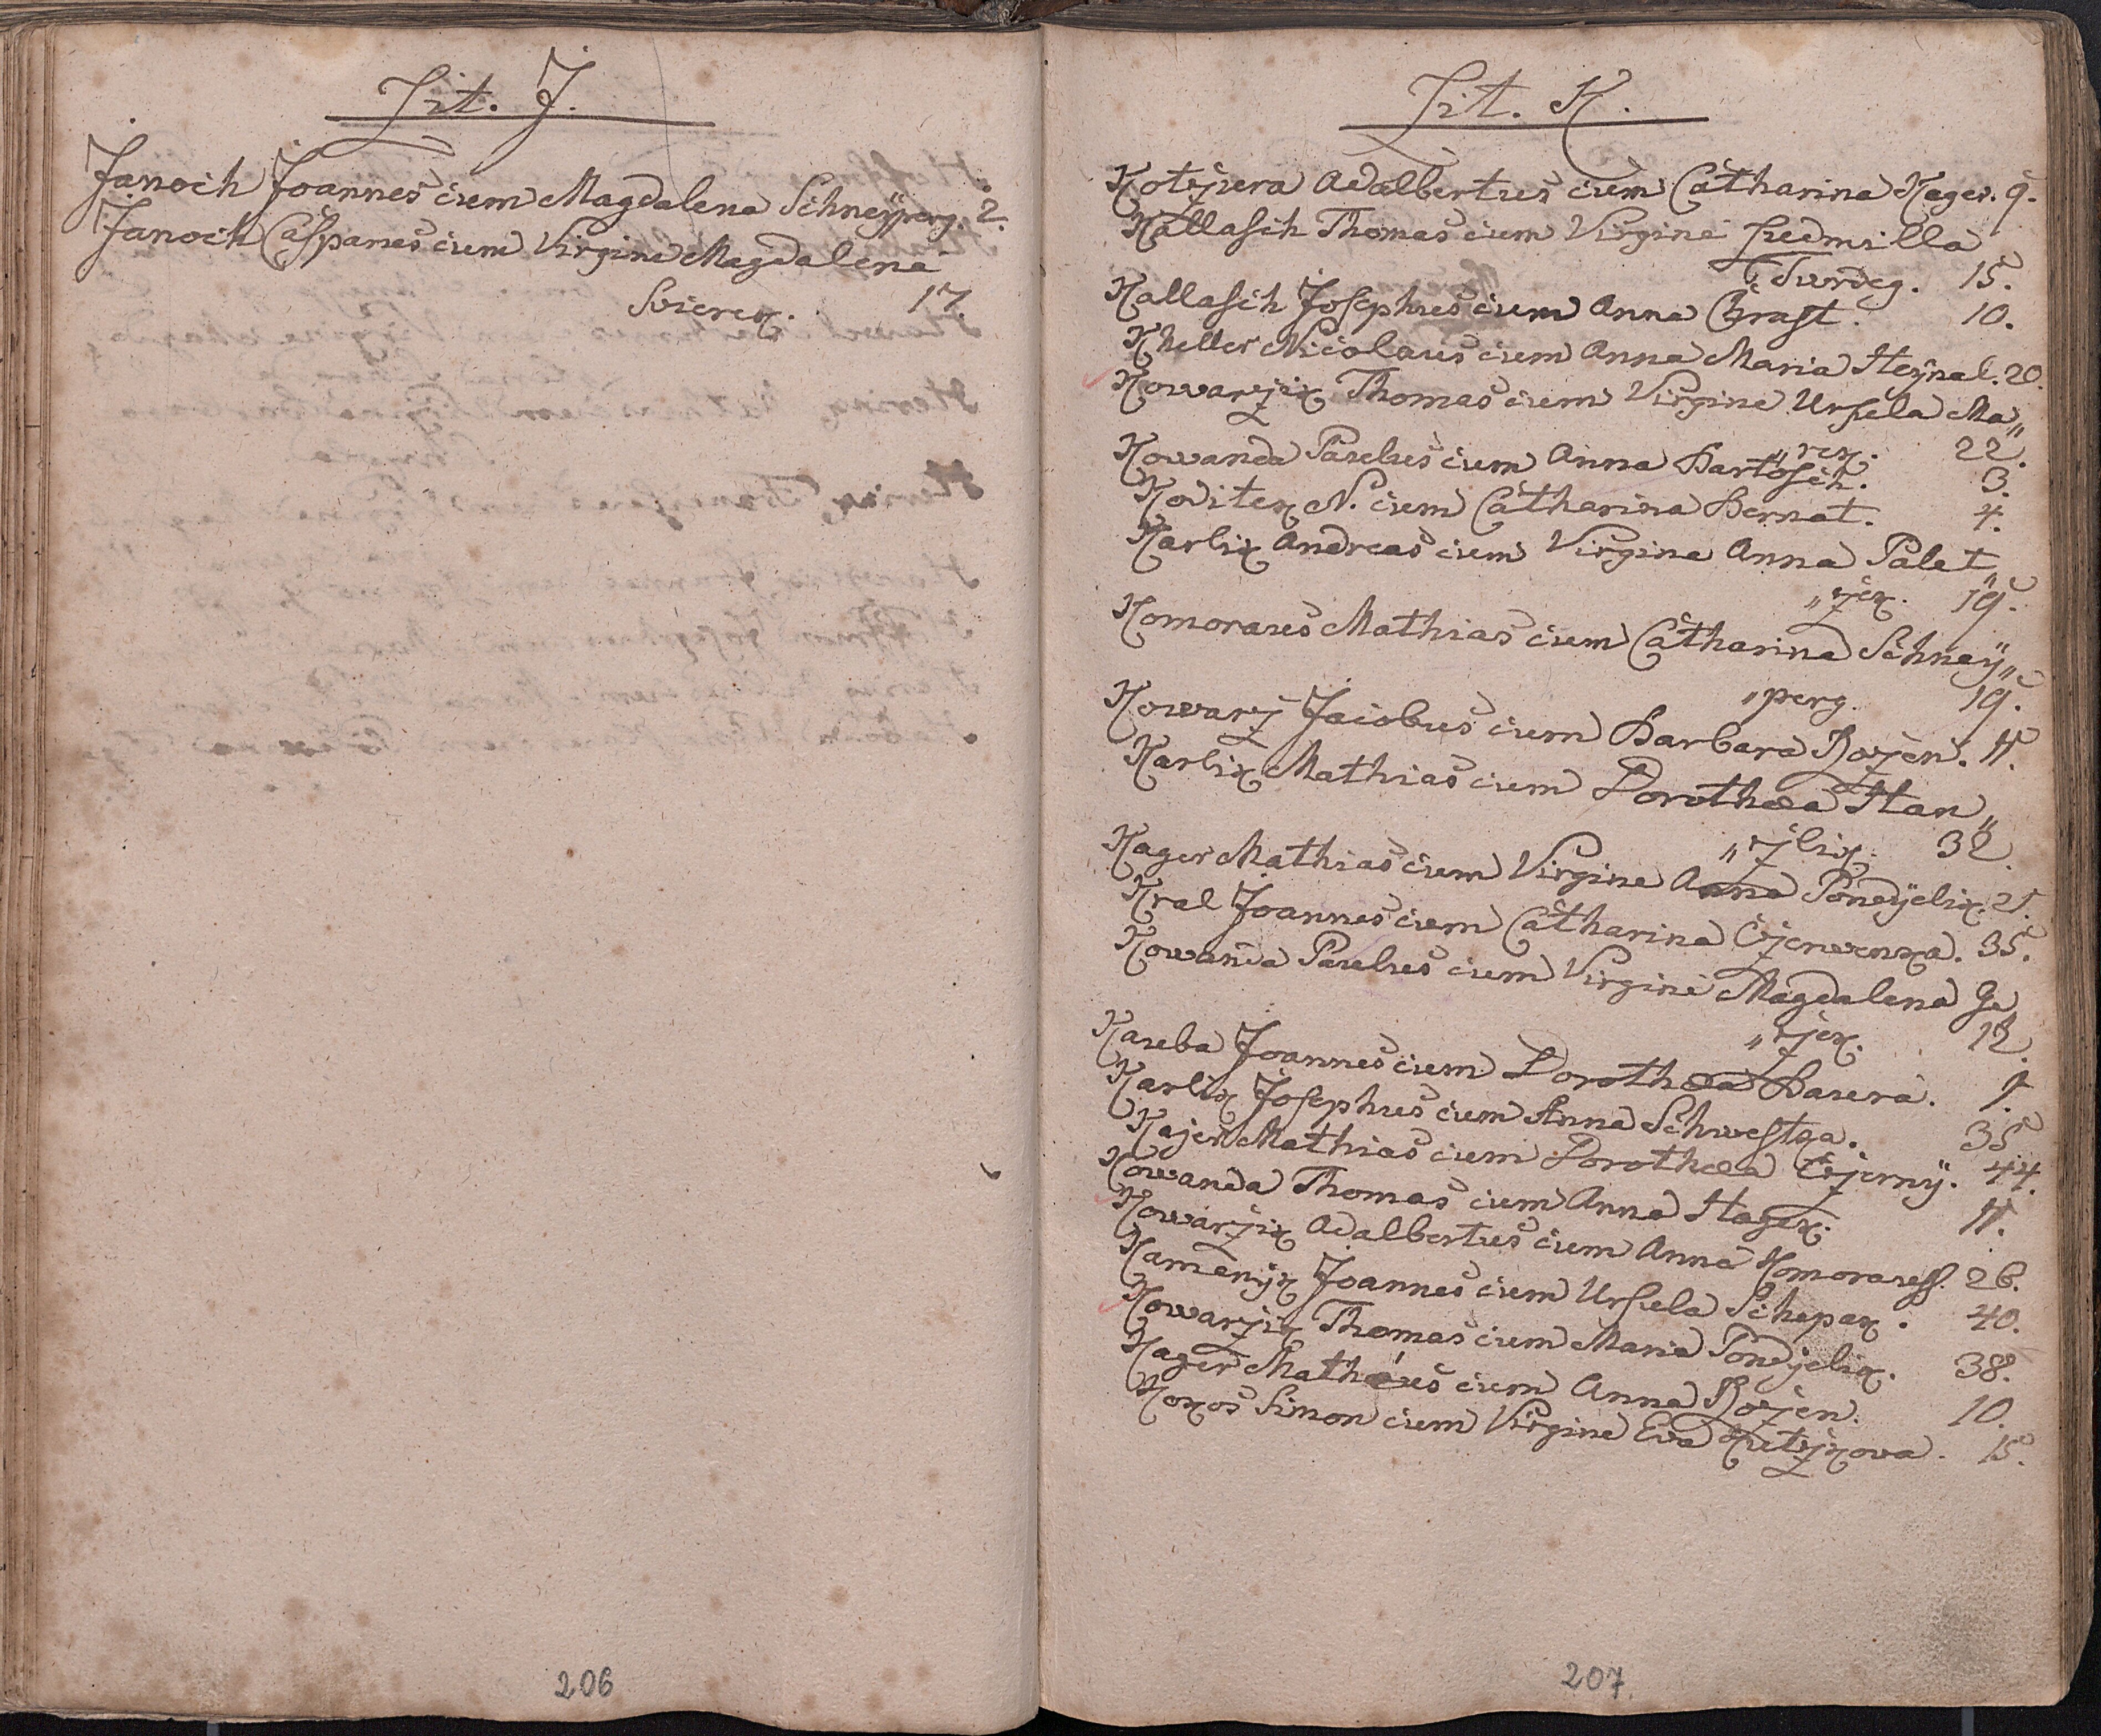 Lit. J.
Janoch Joannes cum Magdalena Schneyperg. 2.
Janoch Casparus cum Virgine Magdalena
Svierek. 17.
206
Lit. K.
Kotzjura Adalbertus cum Catharina Kager. 9.
Kallasch Thomas cum Virgine Ludmilla
Twrdeg. 15.
Kallasch Josephus cum Anna Chrast. 10.
Kheller Nicolaus cum Anna Maria Heynal. 20.
Kowarzik Thomas cum Virgine Ursula Ma„
„rek. 22.
Kowanda Paulus cum Anna Bartosch. 3.
Koditek N. cum Catharina Bernat. 4.
Karlik Andreas cum Virgine Anna Palet„
„zek. 19.
Komoraus Mathias cum Catharina Schney„
„perg. 19.
Kowarz Jacobus cum Barbara Bozen. 11.
Karlik Mathias cum Dorothea Han„
„zlik. 32.
Kager Mathias cum Virgine Anna Pondyelik. 21.
Kral Joannes cum Catharina Czerwenka. 35.
Kowanda Paulus cum Virgine Magdalena Ge
„zek. 12.
Kauba Joannes cum Dorothea Baura. 1.
Karlik Josephus cum Anna Schwestka. 35
Kajer Mathias cum Dorothea Czerny. 44.
Kowanda Thomas cum Anna Hagek. 11.
Kowarzik Adalbertus cum Anna Komorauss. 26.
Kamenyk Joannes cum Ursula Schepak. 40.
Kowarzik Thomas cum Maria Pondjelik. 38.
Kager Mathäus cum Anna Bozen. 10.
Kokos Simon cum Virgine Eva 15.
207.